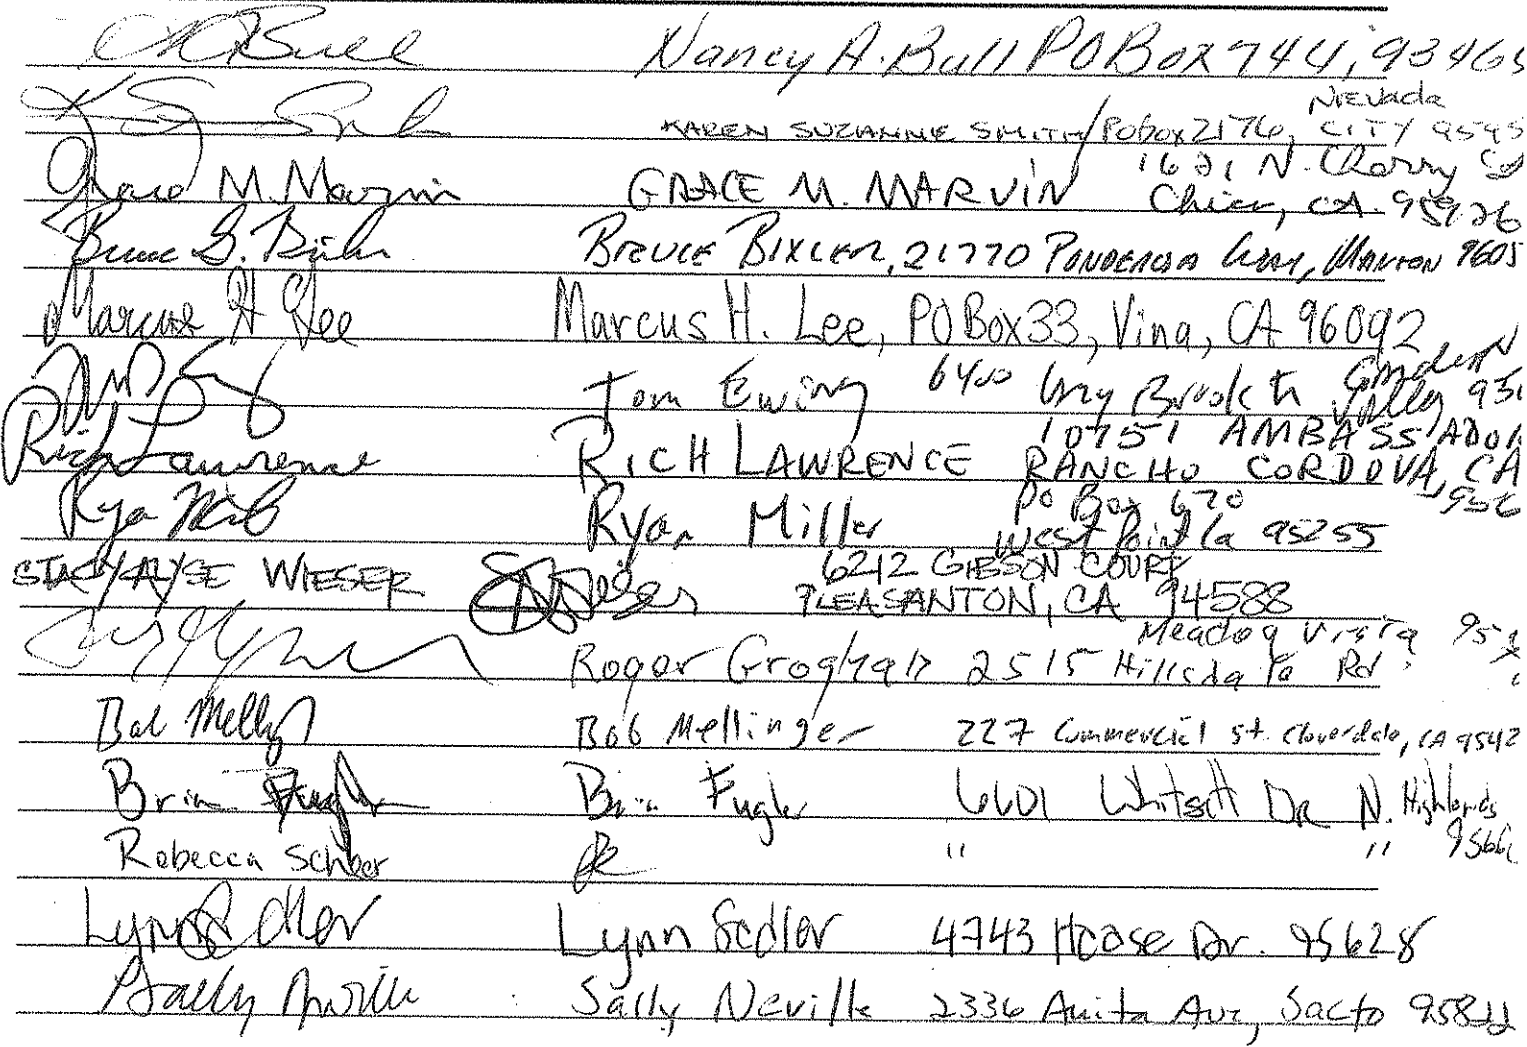 Nancy A. Bull PO Box 744, 93465
KAREN SUZANNE SMITH / PO box 2176, Nevada CITY 9595
Grace M. Marvin GRACE M. MARVIN 1621 N. Cherry St
Chico, CA. 95926
Bruce G. Bixler BRUCE BIXLER, 21770 PONDEROSA Way, MANTON 9605
Marcus H Lee Marcus H. Lee, PO Box 33, Vina, CA 96092
Tom Ewing 6400 Brook Garden Valley
Rich Lawrence RICH LAWRENCE 10751 AMBASSADOR
RANCHO CORDOVA, CA 956
Ryan Miller PO Box 670
West Point Ca 95255
STACY ALYSE WIESER 6212 GIBSON COURT
PLEASANTON, CA 94588
Roger Groghan 2515 Hillsdale Rd Meadow Vista 95
Bob Mellinger 227 Commercial St. Cloverdale, CA 9542
Brian Fugler 6601 Whitsett Dr N. Highlands
Rebecca " " 9566
Lynn Sedler Lynn Sedler 4743 Dr. 95628
Sally Neville Sally Neville 2336 Anita Ave, Sacto 95822